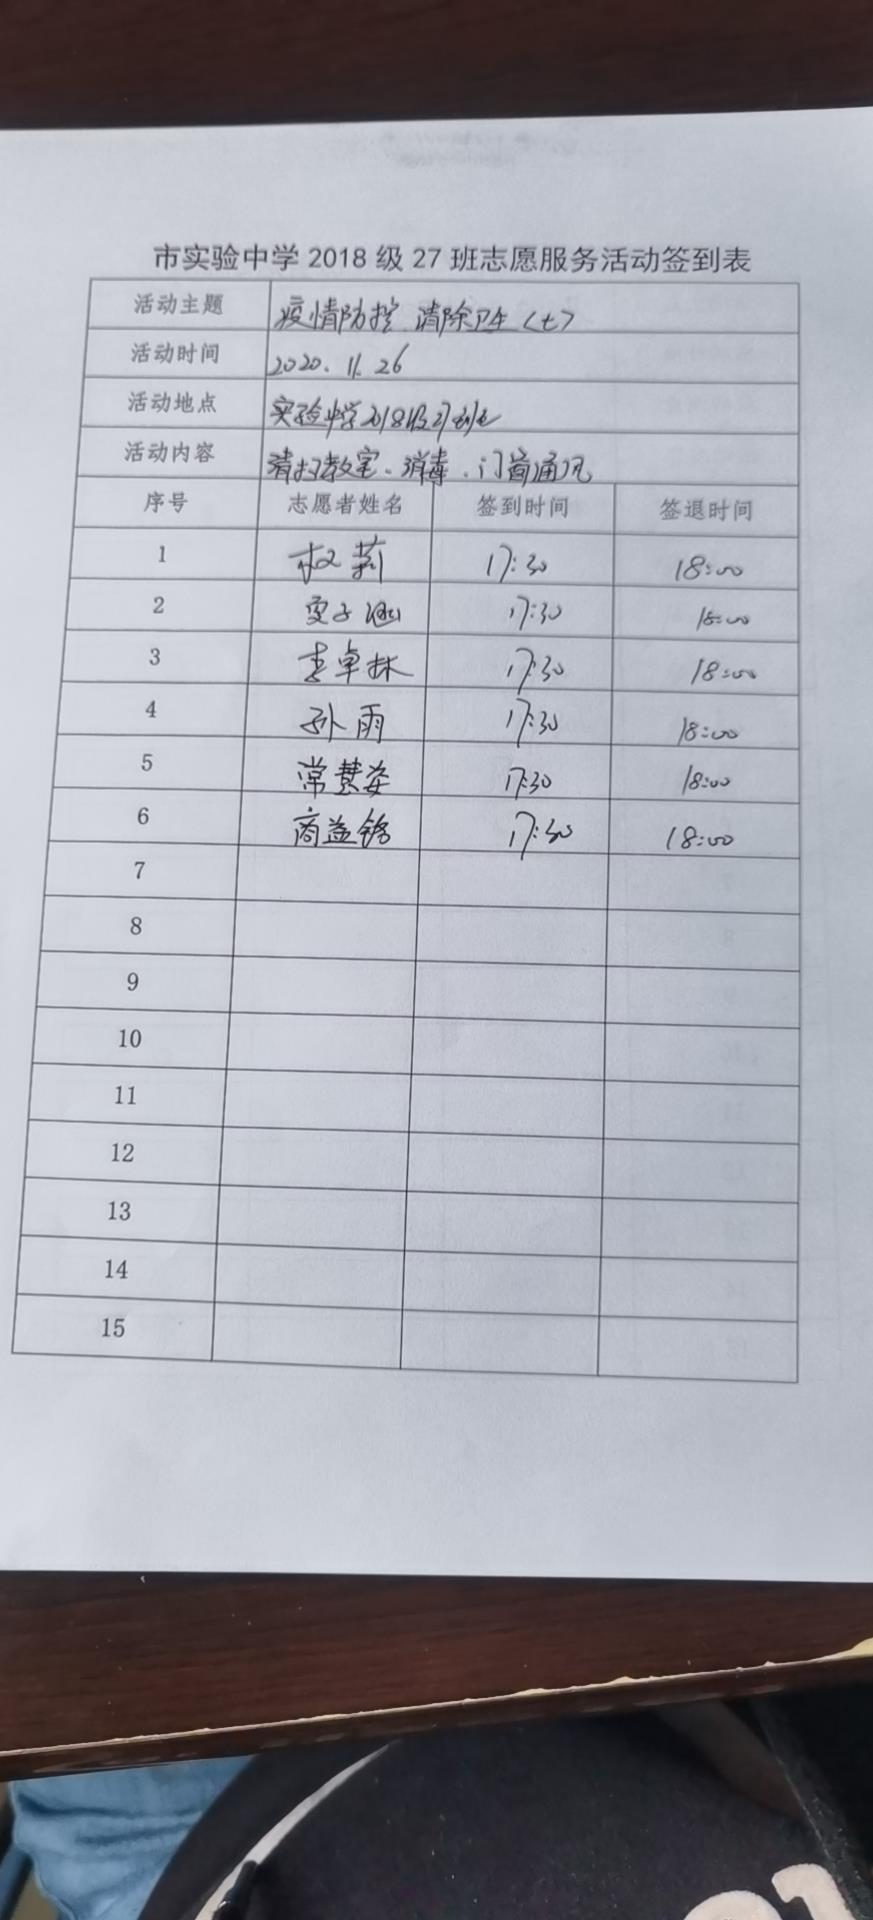 市实验中学 2018 级 27 班志愿服务活动签到表
活动主题 疫情防控 清除卫生〈七〉
活动时间 2020.11.26
活动地点 实验中学2018级27班
活动内容 清扫教室、消毒、门窗通风
序号 志愿者姓名 签到时间 签退时间
1 权莉 17:30 18:00
2 子涵 17:30 18:00
3 李卓林 17:30 18:00
4 孙雨 17:30 18:00
5 常慧姿 17:30 18:00
6 商益铭 17:30 18:00
7
8
9
10
11
12
13
14
15